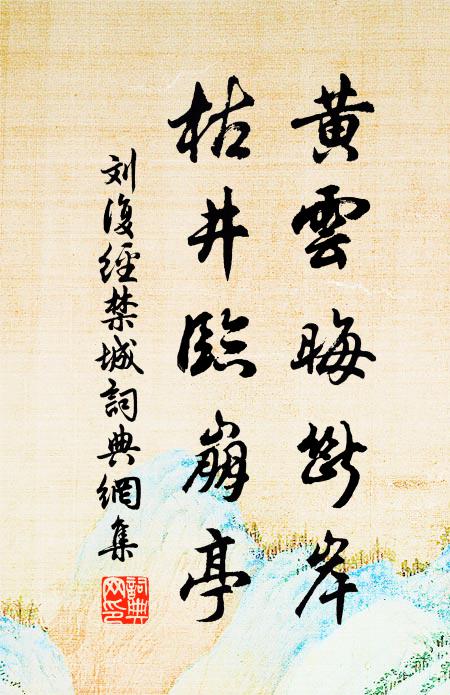 黄雲晦断岸
枯井臨崩亭
刘復經禁城詞典網集
詞典网印